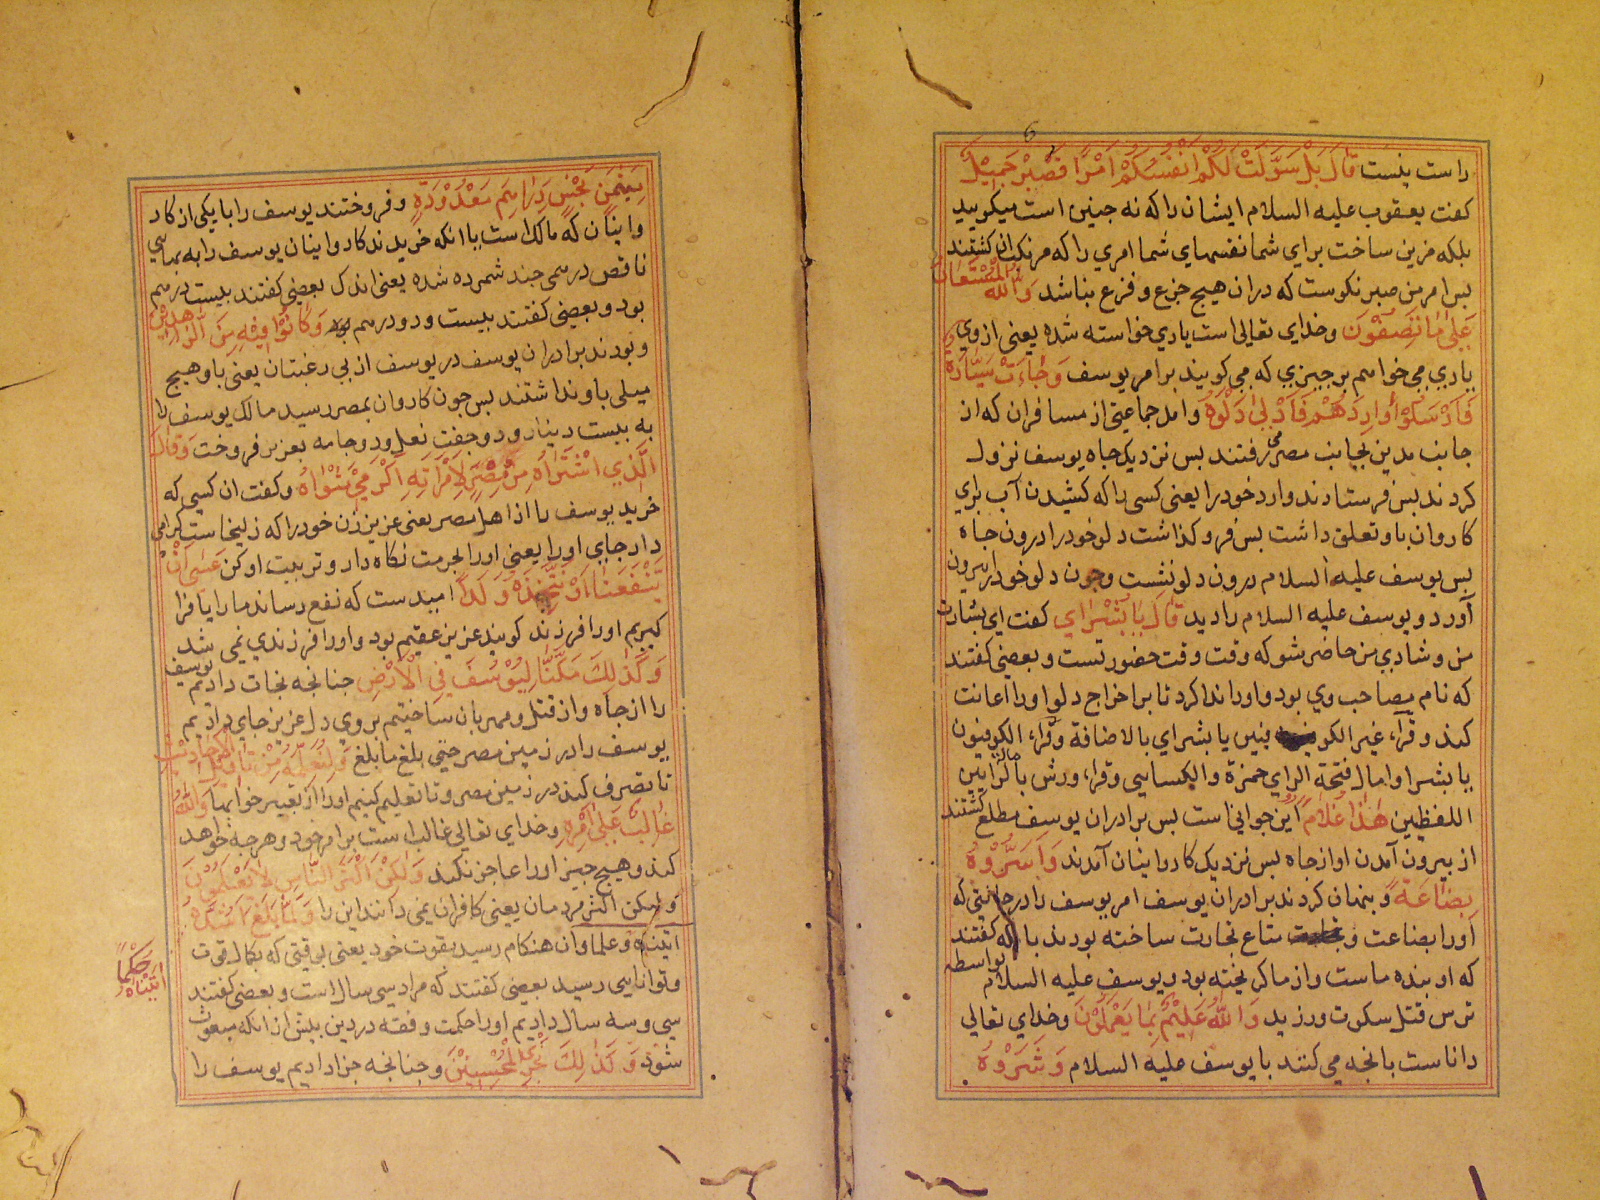 راست پنست قَالَ بَلْ سَوَّلَتْ لَكُمْ اَنْفُسُكُمْ اَمْرًا فَصَبْرٌ جَمِيْلٌ
كفت يعقوب عليه السلام ايشان را كه نه چنين است ميكوييد
بلكه مزين ساخت براي شما نفسهاي شما امري را كه مرتكب ان كشتند
بس امر من صبر نكوست كه دران هيچ جزع و فزع نباشد وَاللّٰهُ الْمُسْتَعَانُ
عَلٰى مَا تَصِفُوْنَ وخداي تعالى است ياري خواسته شده يعني ازوي
ياري مي خواهم بر چيزي كه مي كوييد بر امر يوسف وَجَاءَتْ سَيَّارَةٌ
فَاَرْسَلُوْا وَارِدَهُمْ فَاَدْلٰى دَلْوَهُ وامد جماعتي از مسافران كه از
جانب مدين بجانب مصر مي رفتند بس نزديك چاه يوسف نزول
كردند بس فرستادند وارد خود را يعني كسى را كه كشيدن آب براي
كاروان باو تعلق داشت بس فرو كذاشت دلو خود را درون چاه
بس يوسف عليه السلام درون دلو نشست وچون دلو خود را بيرون
آورد ويوسف عليه السلام را ديد قَالَ يَا بُشْرَاي كفت اي بشارت
من وشادي من حاضر شو كه وقت وقت حضور تست وبعضي كفتند
كه نام مصاحب وي بود واورا ندا كرد تا بر اخراج دلو اورا اعانت
كند وقرأ غير الكوفيين يا بشراي بالاضافة وقرأ الكوفيون
يا بشرا وامال فتحة الراي حمزة والكسايي وقرأ ورش بامالة الرا بين
اللفظين هٰذَا غُلَامٌ اين جواني است بس برادران يوسف مطلع كشتند
از بيرون آمدن او از چاه بس نزديك كاروانيان آمدند وَاَسَرُّوْهُ
بِضَاعَةً وپنهان كردند برادران يوسف امر يوسف را در حالتي كه
اورا بضاعت و متاع تجارت ساخته بودند با انكه كفتند
كه او بنده ماست واز ما كريخته بود ويوسف عليه السلام بواسطه
ترس قتل سكوت ورزيد وَاللّٰهُ عَلِيْمٌ بِمَا يَعْمَلُوْنَ وخداي تعالي
داناست بانچه مي كنند با يوسف عليه السلام وَشَرَوْهُ
بِثَمَنٍ بَخْسٍ دَرَاهِمَ مَعْدُوْدَةٍ وفروختند يوسف را با يكي از كار
وانيان كه مالك است يا انكه خريدند كاروانيان يوسف را به بهاي
ناقص درمي چند شمرده شده يعني اندك بعضي كفتند بيست درهم
بود وبعضي كفتند بيست ودو درهم بود وَكَانُوْا فِيْهِ مِنَ الزَّاهِدِيْنَ
وبودند برادران يوسف در يوسف از بي رغبتان يعني باو هيچ
ميلي باو نداشتند بس چون كاروان بمصر رسيد مالك يوسف را
به بيست دينار ودو جفت نعل ودو جامه بعزيز فروخت وَقَالَ
الَّذِي اشْتَرَاهُ مِنْ مِصْرَ لِاِمْرَاَتِهِ اَكْرِمِيْ مَثْوَاهُ وكفت ان كسي كه
خريد يوسف را از اهل مصر يعني عزيز زن خود را كه زليخاست كرامي
دار جاي اورا يعني اورا بحرمت نكاه دار وتربيت او كن عَسٰى اَنْ
يَنْفَعَنَا اَوْ نَتَّخِذَهُ وَلَدًا اميدست كه نفع رساند مارا يا فرا
كيريم اورا فرزند كويند عزيز عقيم بود واورا فرزندي نمي شد
وَكَذٰلِكَ مَكَّنَّا لِيُوْسُفَ فِي الْاَرْضِ چنانچه نجات داديم يوسف
را از چاه واز قتل ومهربان ساختيم بروي دل عزيز جاي داديم
يوسف را در زمين مصر حتي بلغ ما بلغ وَلِنُعَلِّمَهُ مِنْ تَاْوِيْلِ الْاَحَادِيْثِ
تا تصرف كند در زمين مصر وتا تعليم كنيم اورا از تعبير خوابها وَاللّٰهُ
غَالِبٌ عَلٰى اَمْرِهِ وخداي تعالي غالب است بر امر خود وهر چه خواهد
كند وهيچ چيز اورا عاجز نكند وَلٰكِنَّ اَكْثَرَ النَّاسِ لَا يَعْلَمُوْنَ
وليكن اكثر مردمان يعني كافران نمي دانند اين را وَلَمَّا بَلَغَ اَشُدَّهُ
اتيناه وعلما وان هنكام رسيد بقوت خود يعني بوقتي كه بكمال قوت
وتوانايي رسيد بعضي كفتند كه مراد سي سال است وبعضي كفتند
سي وسه سال داديم اورا حكمت وفقه در دين بيش از انكه مبعوث
شود وَكَذٰلِكَ نَجْزِي الْمُحْسِنِيْنَ وچنانچه جزا داديم يوسف را
اٰتَيْنَاهُ حُكْمًا